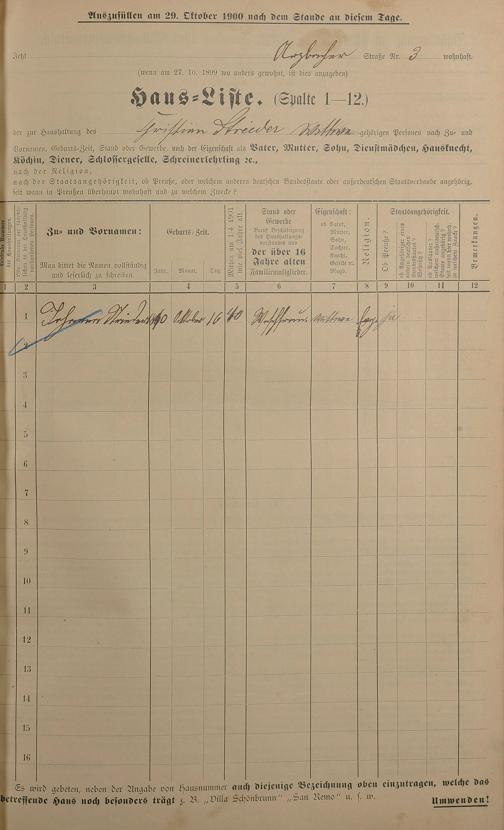 Auszufüllen am 29. Oktober 1900 nach dem Stande an diesem Tage.
Jetzt Arzbacher Straße Nr. 3 wohnhaft.
(wenn am 27. 10. 1899 wo anders gewohnt, ist dies anzugeben)
Haus-Liste. (Spalte 1—12.)
der zur Haushaltung des Christian Strieder Wittwe gehörigen Personen nach Zu- und
Vornamen, Geburts-Zeit, Stand oder Gewerbe, und nach der Eigenschaft als Vater, Mutter, Sohn, Dienstmädchen, Hausknecht,
Köchin, Diener, Schlossergeselle, Schreinerlehrling ꝛc.,
nach der Religion,
nach der Staatsangehörigkeit, ob Preuße, oder welchem anderen deutschen Bundesstaate oder außerdeutschen Staatsverbande angehörig,
seit wann in Preußen überhaupt wohnhaft und zu welchem Zwecke?
Zu- und Vornamen:
Man bittet die Namen vollständig
und leserlich zu schreiben.
Geburts-Zeit.
Jahr. Monat. Tag.
Mithin am 1/4 1901
wie viel Jahre alt
Stand oder
Gewerbe
der über 16
Jahre alten
Familienmitglieder.
Eigenschaft:
ob Vater,
Mutter,
Sohn,
Tochter,
Knecht,
Geselle ꝛc.
Magd.
Religion.
Staatsangehörigkeit.
Ob Preuße?
Bemerkungen.
1 2 3 4 5 6 7 8 9 10 11 12
1 Strieder Oktober 16 Wittwe ja
2
3
4
5
6
7
8
9
10
11
12
13
14
15
16
Es wird gebeten, neben der Angabe von Hausnummer auch diejenige Bezeichnung oben einzutragen, welche das
betreffende Haus noch besonders trägt z. B. „Villa Schönbrunn" „San Remo" u. s. w. Umwenden!